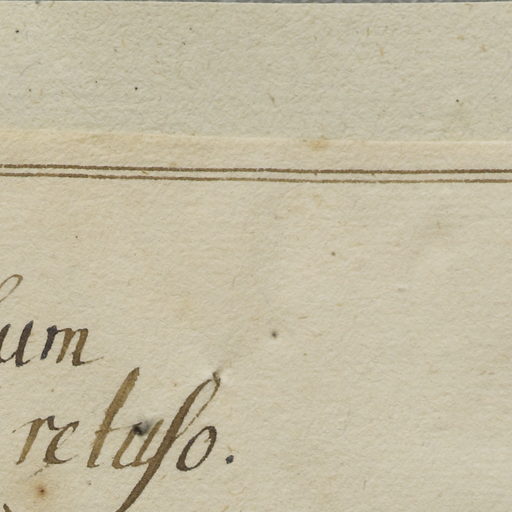 um
retuſo.